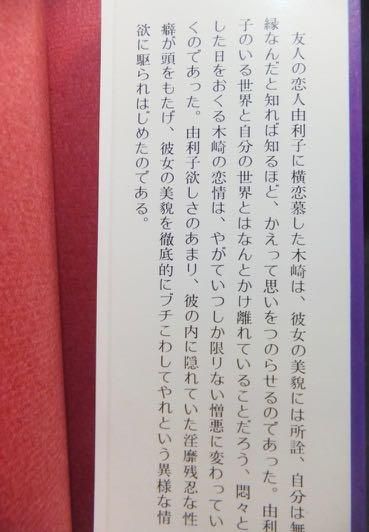 友人の恋人由利子に横恋慕した木崎は、彼女の美貌には所詮、自分は無
縁なんだと知れば知るほど、かえって思いをつのらせるのであった。由利
子のいる世界と自分の世界とはなんとかけ離れていることだろう、悶々と
した日をおくる木崎の恋情は、やがていつしか限りない憎悪に変わってい
くのであった。由利子欲しさのあまり、彼の内に隠れていた淫靡残忍な性
癖が頭をもたげ、彼女の美貌を徹底的にブチこわしてやれという異様な情
欲に駆られはじめたのである。